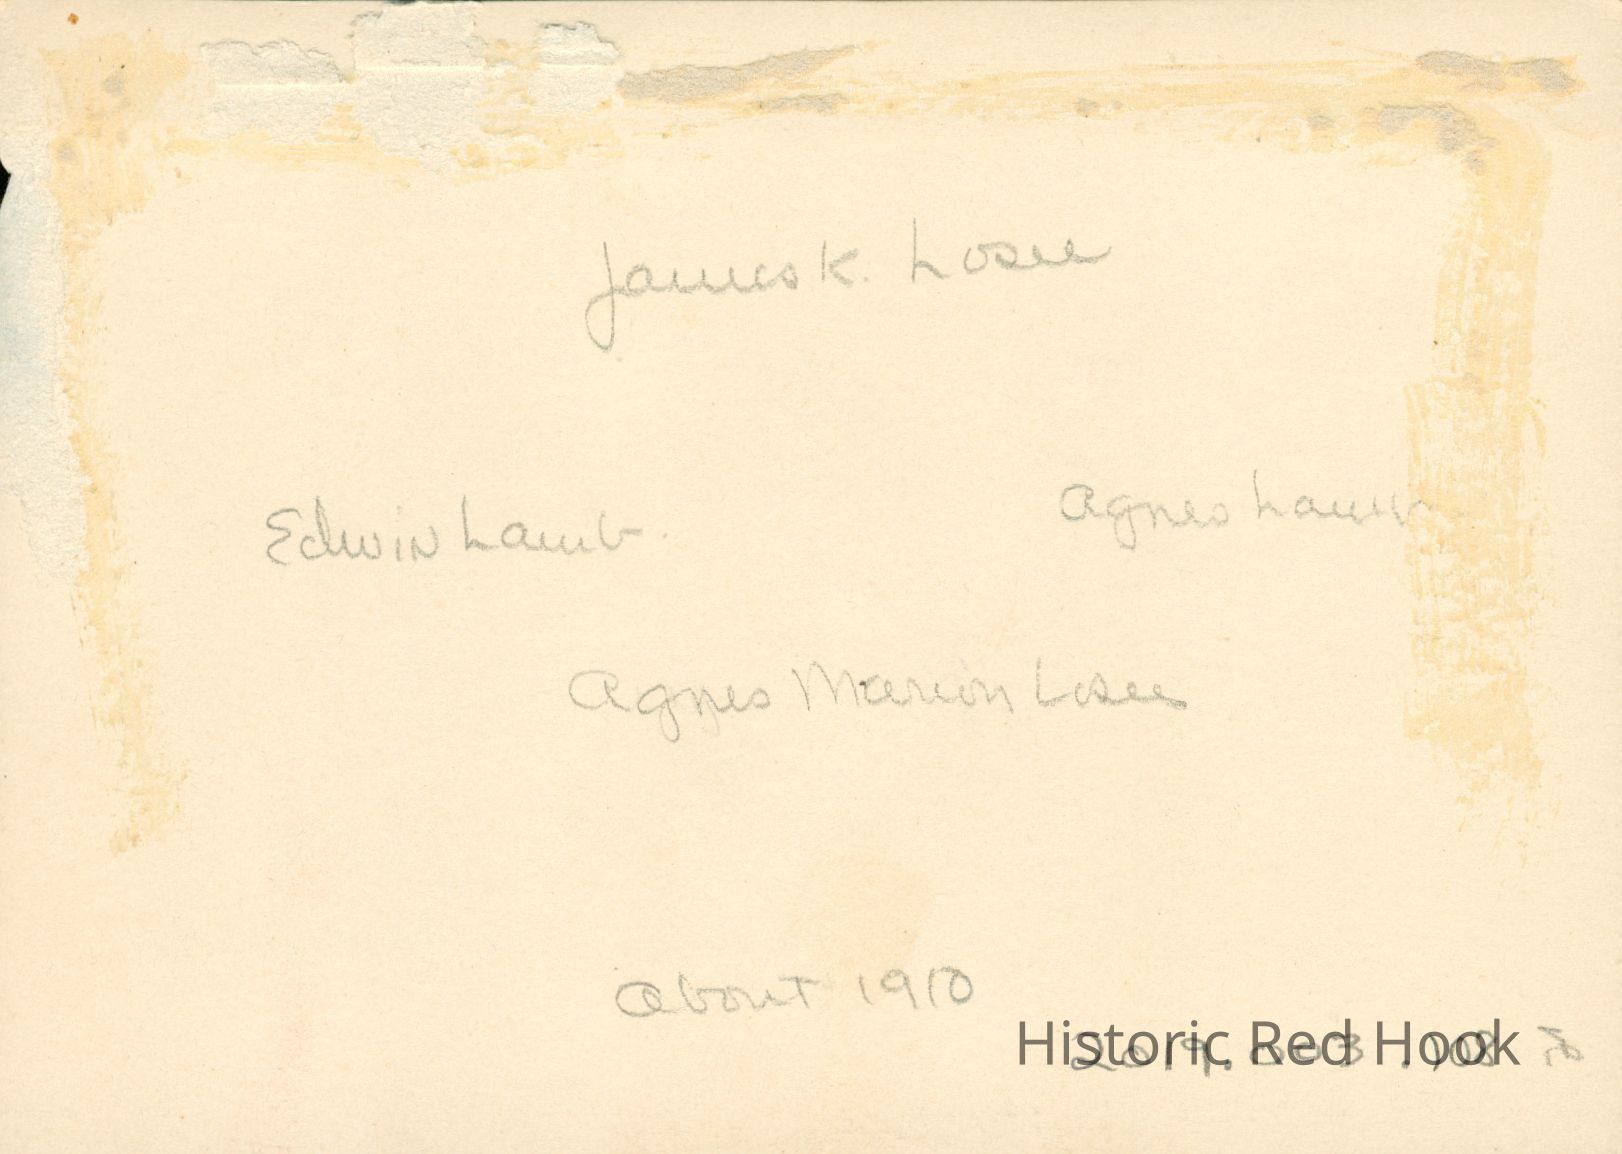 James K. Losee
Edwin Lamb. Agnes Lamb
Agnes Marion Losee
about 1910
Historic Red Hook
2019.003.108